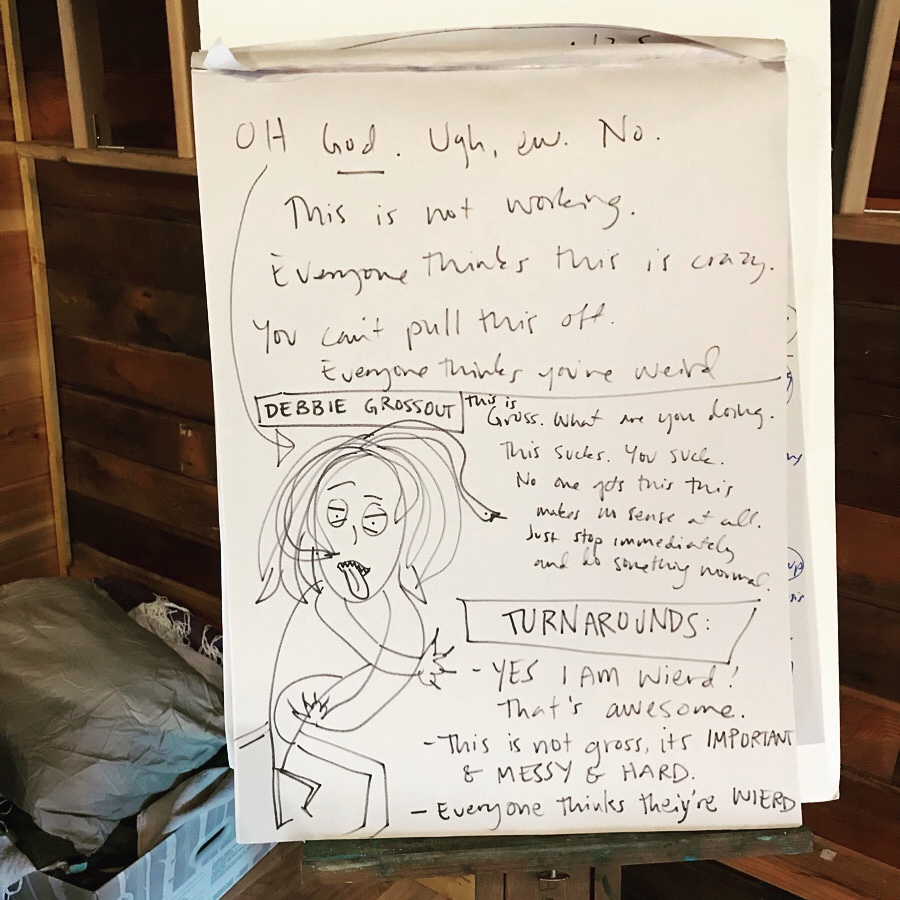 OH God. Ugh, ew. No.
This is not working.
Everyone thinks this is crazy.
You can't pull this off.
Everyone thinks you're weird
DEBBIE GROSSOUT
this is
Gross. What are you doing.
This sucks. You suck.
No one gets this this
makes no sense at all.
Just stop immediately
and do something normal.
TURNAROUNDS:
- YES I AM Wierd!
That's awesome.
- This is not gross, its IMPORTANT
& MESSY & HARD.
- Everyone thinks theiy're WIERD